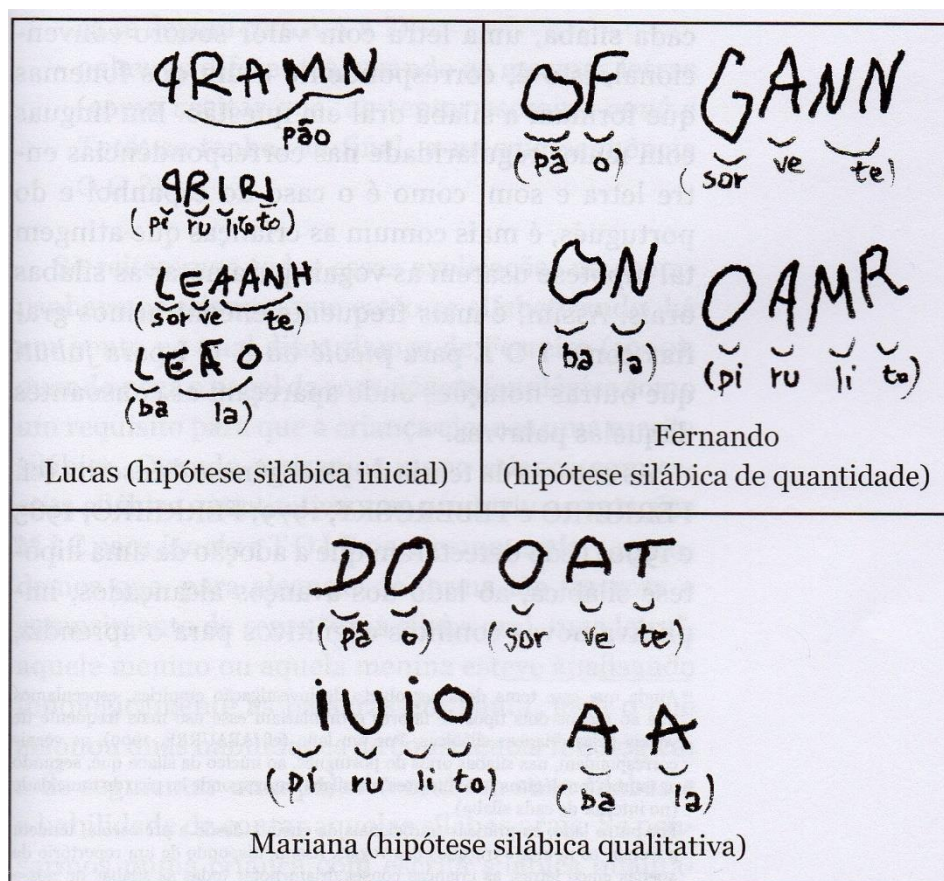 pão
(pi ru li to)
LEAANH
(sor ve te)
(ba la)
Lucas (hipótese silábica inicial)
OI GANN
(pã o) (sor ve te)
ON OAMR
(ba la) (pi ru li to)
Fernando
(hipótese silábica de quantidade)
DO OAT
(pã o) (sor ve te)
iUiO AA
(pi ru li to) (ba la)
Mariana (hipótese silábica qualitativa)